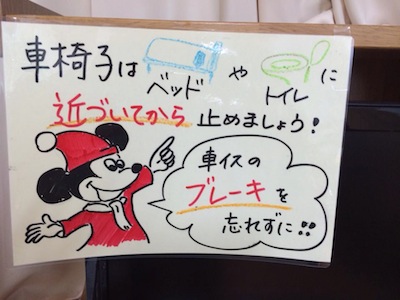 車椅子は ベッド や トイレ に
近づいてから 止めましょう!
車イスの
ブレーキを
忘れずに!!